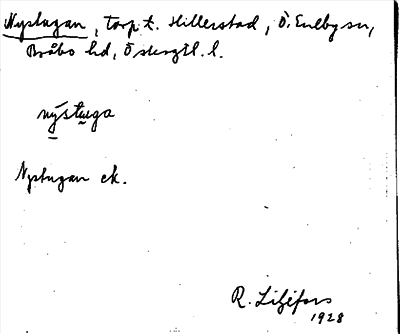 Nystugan, torp t. Hillerstad, Ö. Eneby sn,
Bråbo hd, Östergtl. l.
nýstuga
Nystugan ek.
R. Liljefors
1928